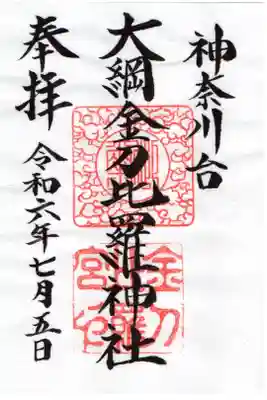 神奈川台
大綱金刀比羅神社
奉拝
令和六年七月五日